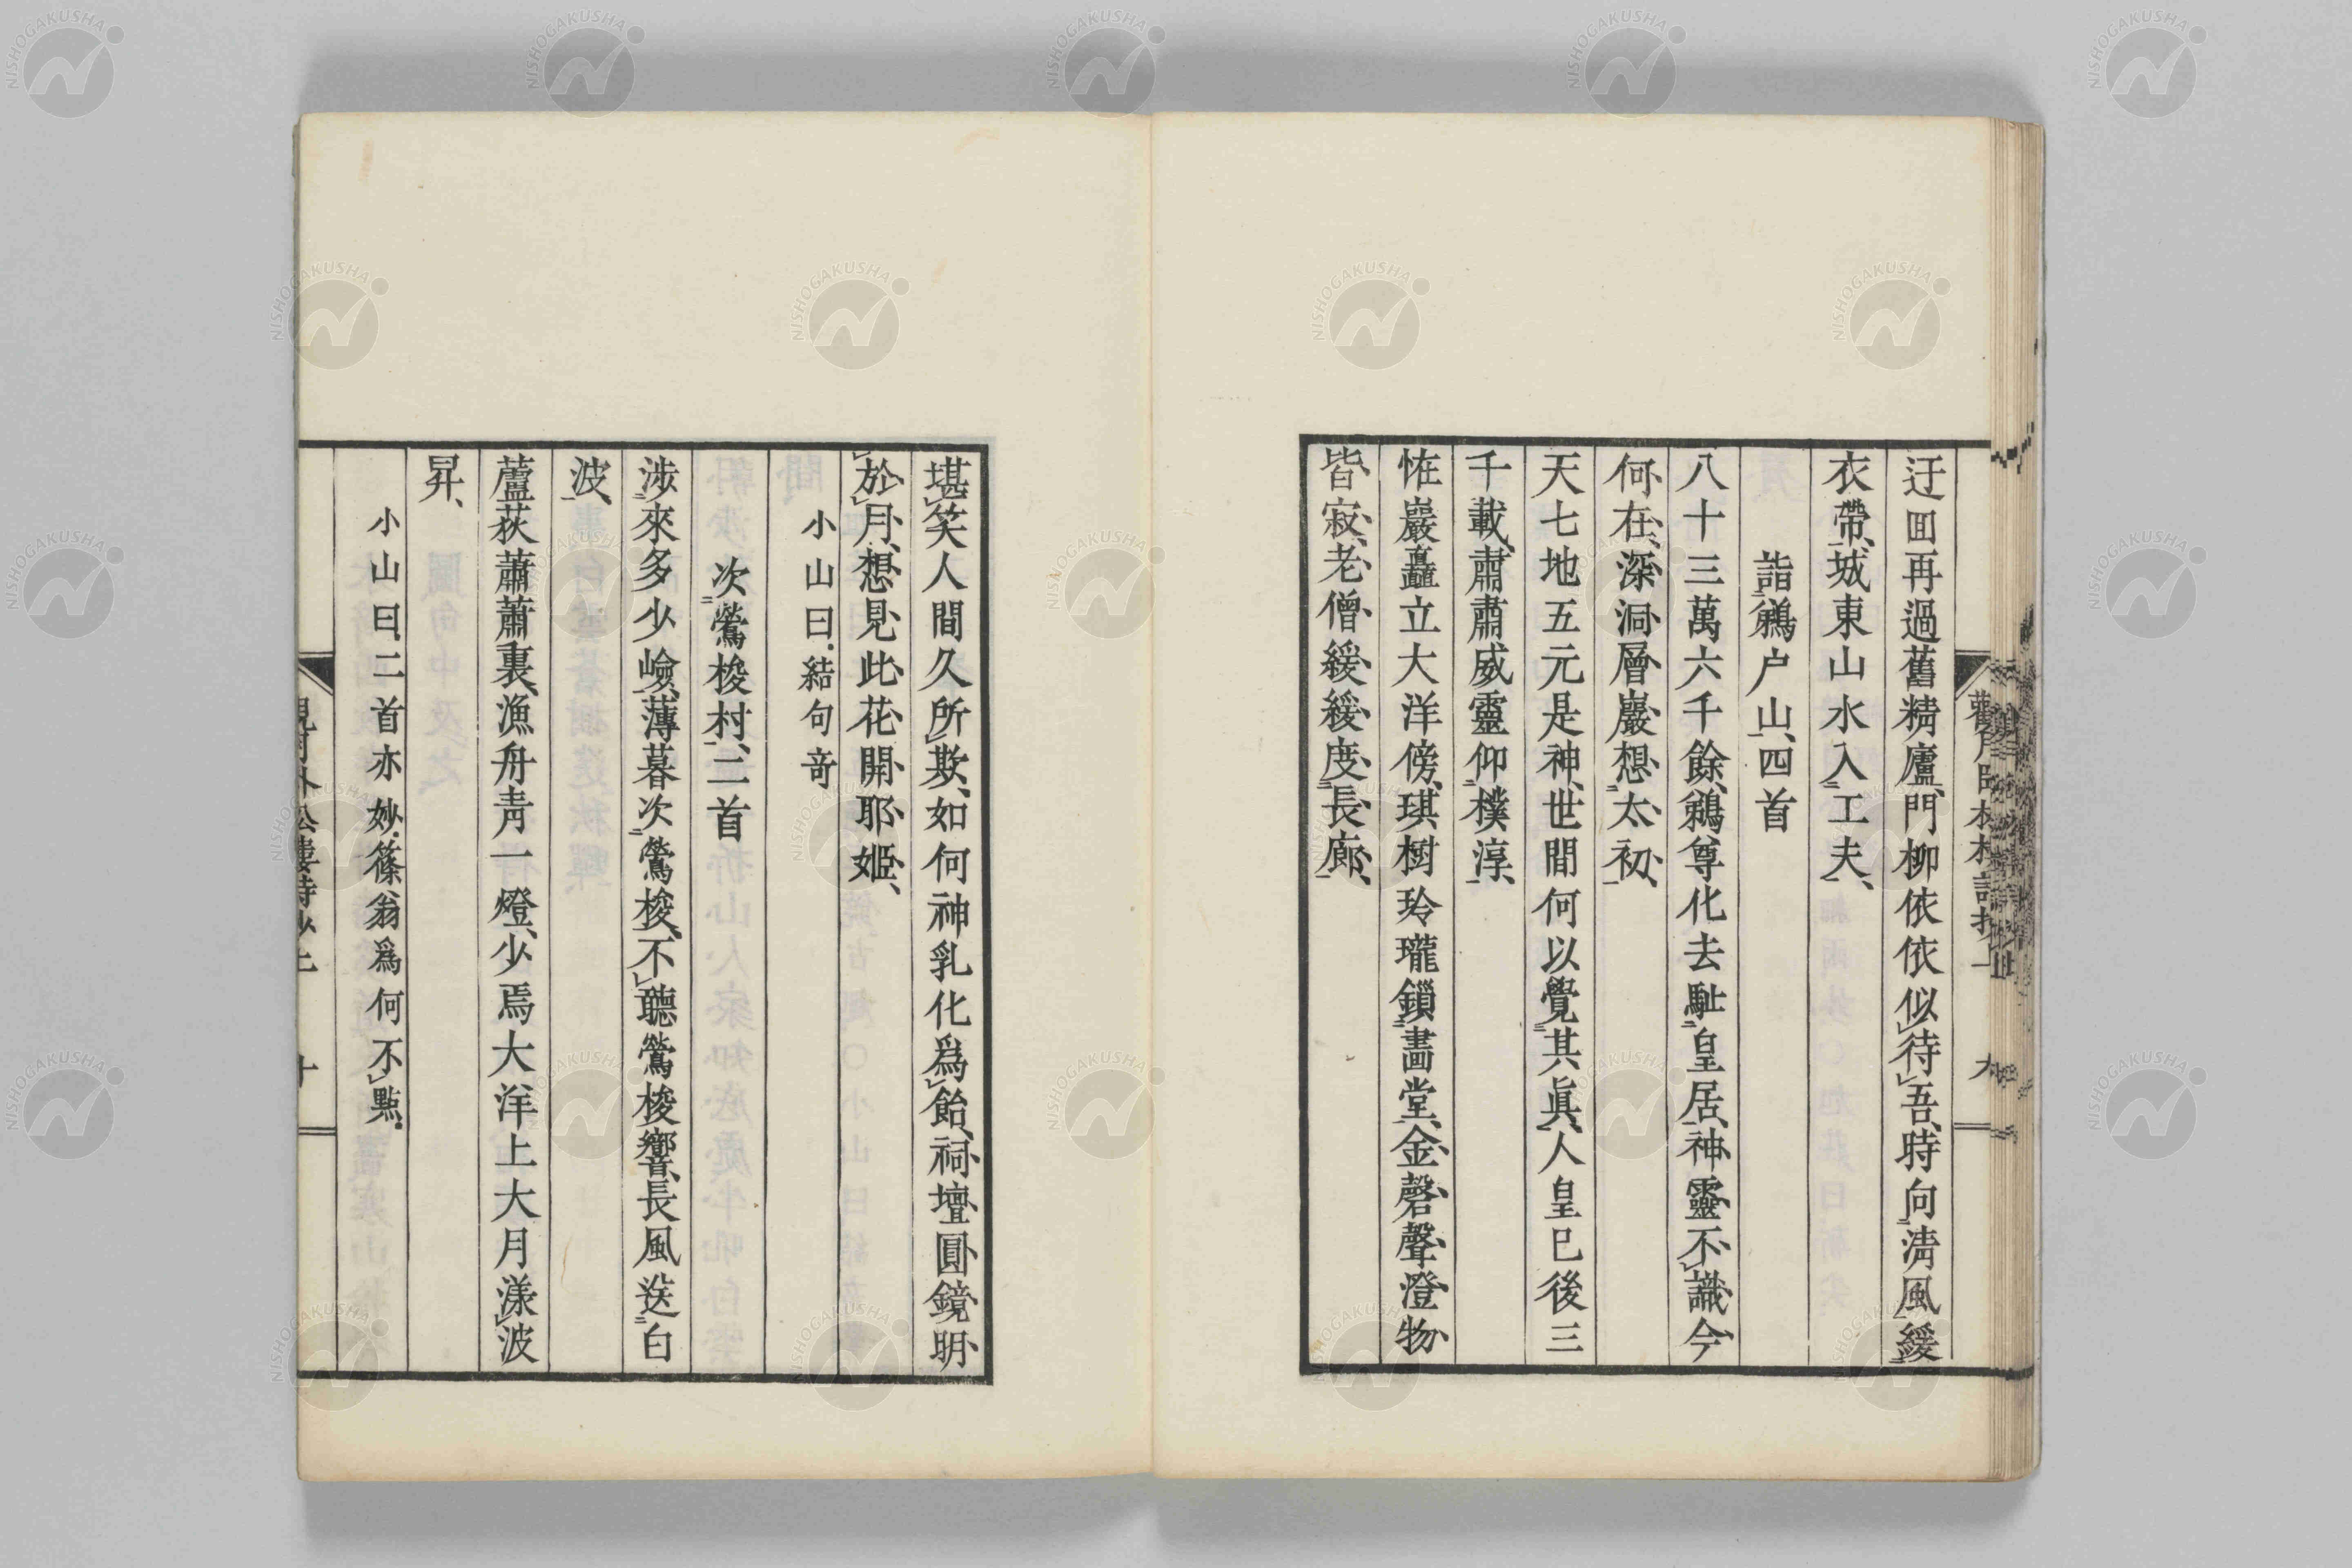 迂囬再過舊精廬、門柳依依似待吾、時向清風緩
衣帶、城東山水入工夫、
詣鵜户山、四首
八十三萬六千餘、鵜尊化去駐皇居、神靈不識今
何在、深洞層巖想太初、
天七地五元是神、世間何以覺其眞、人皇已後三
千載、肅肅威靈仰樸淳、
恠巖矗立大洋傍、琪樹玲瓏鎖畵堂、金磬聲澄物
皆寂、老僧緩緩度長廊、
堪笑人間久所欺、如何神乳化爲飴、祠壇圓鏡明
於月、想見此花開耶姬、
小山曰.結句竒
次鶯梭村、二首
涉來多少嶮、薄暮次鶯梭、不聽鶯梭響、長風送白
波、
蘆荻蕭蕭裏、漁舟靑一燈、少焉大洋上大月漾波
昇、
小山曰.二首亦妙.篠翁爲何不點.
十
NISHOGAKUSHA